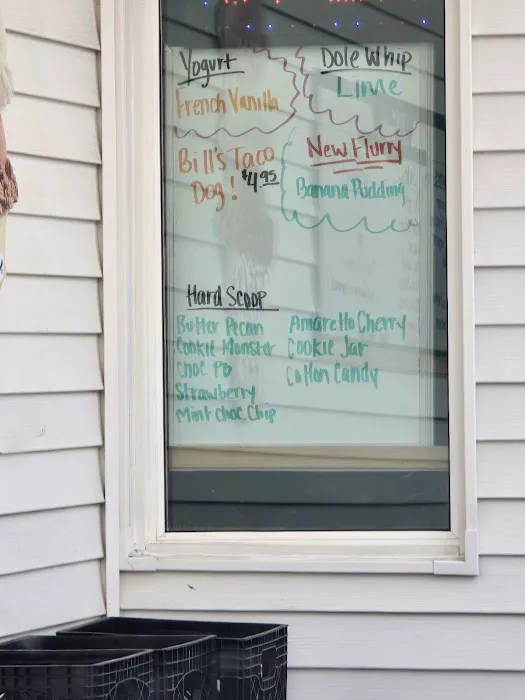 Yogurt
French Vanilla
Dole Whip
Lime
Bill's Taco
Dog! $4.95
New Flurry
Banana Pudding
Hard Scoop
Butter Pecan
Cookie Monster
Choc PB
Strawberry
Mint Choc Chip
Amaretto Cherry
Cookie Jar
Cotton Candy